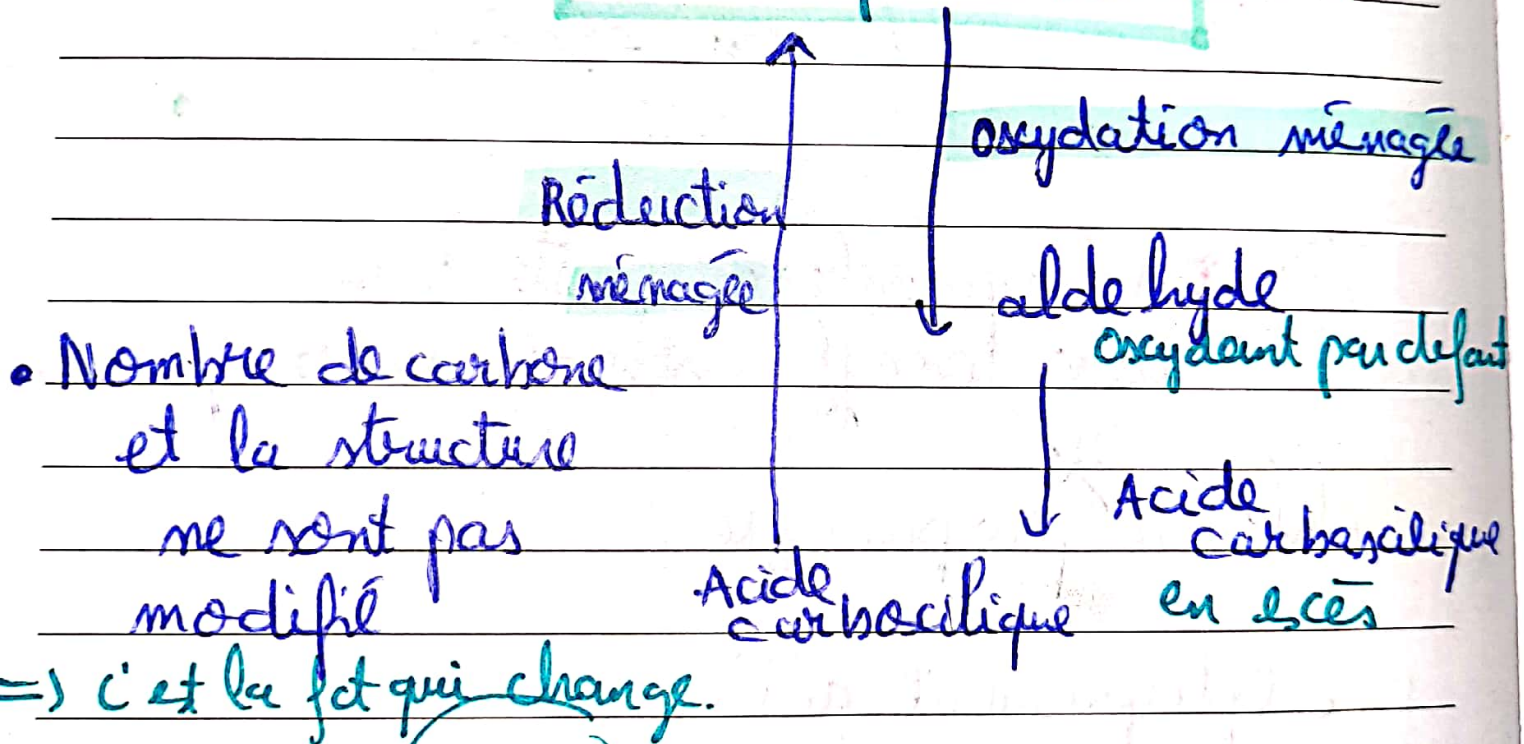 oxydation ménagée
Réduction
ménagée
aldehyde
oxydant par defaut
• Nombre de carbone
et la structure
ne sont pas
modifié
Acide
carboxcilique
en excès
Acide
carbocilique
=> c'est la fct qui change.